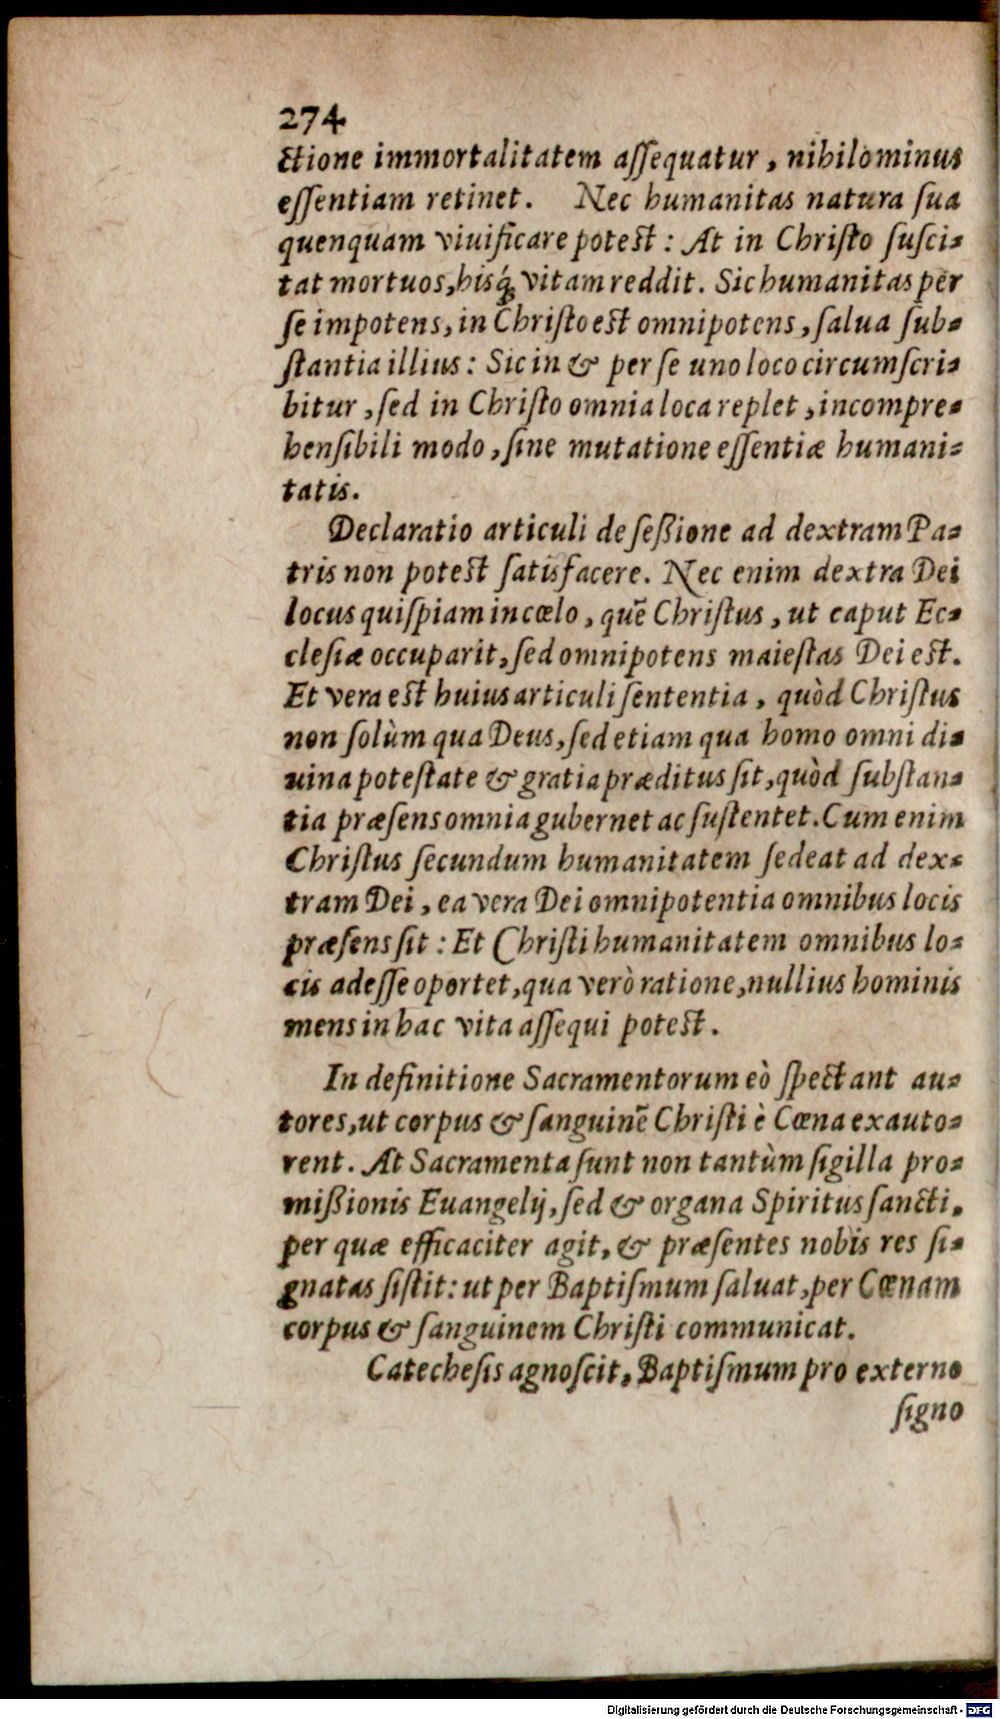 274
ctione immortalitatem aſſequatur, nihilominus
eſſentiam retinet. Nec humanitas natura ſua
quenquam viuificare poteſt: At in Chriſto ſuſci-
tat mortuos, hisq́; vitam reddit. Sic humanitas per
ſe impotens, in Chriſto eſt omnipotens, ſalua ſub-
ſtantia illius: Sic in & per ſe uno loco circumſcri-
bitur, ſed in Chriſto omnia loca replet, incompre-
henſibili modo, ſine mutatione eſſentiæ humani-
tatis.
Declaratio articuli de ſeßione ad dextram Pa-
tris non poteſt ſatisfacere. Nec enim dextra Dei
locus quiſpiam in cœlo, quẽ Chriſtus, ut caput Ec-
cleſiæ occuparit, ſed omnipotens maieſtas Dei eſt.
Et vera eſt huius articuli ſententia, quòd Chriſtus
non ſolùm qua Deus, ſed etiam qua homo omni di-
uina poteſtate & gratia præditus ſit, quòd ſubſtan-
tia præſens omnia gubernet ac ſuſtentet. Cum enim
Chriſtus ſecundum humanitatem ſedeat ad dex-
tram Dei, ea vera Dei omnipotentia omnibus locis
præſens ſit: Et Chriſti humanitatem omnibus lo-
cis adeſſe oportet, qua verò ratione, nullius hominis
mens in hac vita aſſequi poteſt.
In definitione Sacramentorum eò ſpectant au-
tores, ut corpus & ſanguinẽ Chriſti è Cœna exauto-
rent. At Sacramenta ſunt non tantùm ſigilla pro-
mißionis Euangelij, ſed & organa Spiritus ſancti,
per quæ efficaciter agit, & præſentes nobis res ſi-
gnatas ſiſtit: ut per Baptiſmum ſaluat, per Cœnam
corpus & ſanguinem Chriſti communicat.
Catecheſis agnoſcit, Baptiſmum pro externo
ſigno
Digitalisierung gefördert durch die Deutsche Forschungsgemeinschaft - DFG